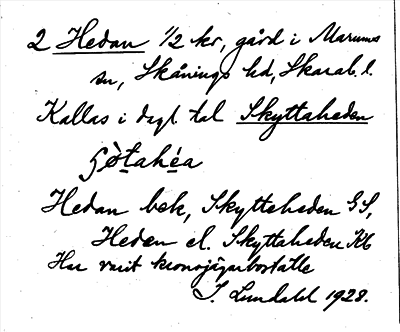 2 Hedan 1/2 kr, gård i Marums
sn, Skånings hd, Skarab. l.
Kallas i dagl. tal Skyttaheden
Hedan bek, Skytteheden GS,
Heden el. Skytteheden Kb
Har varit kronojägarboställe
J. Lundahl 1928.